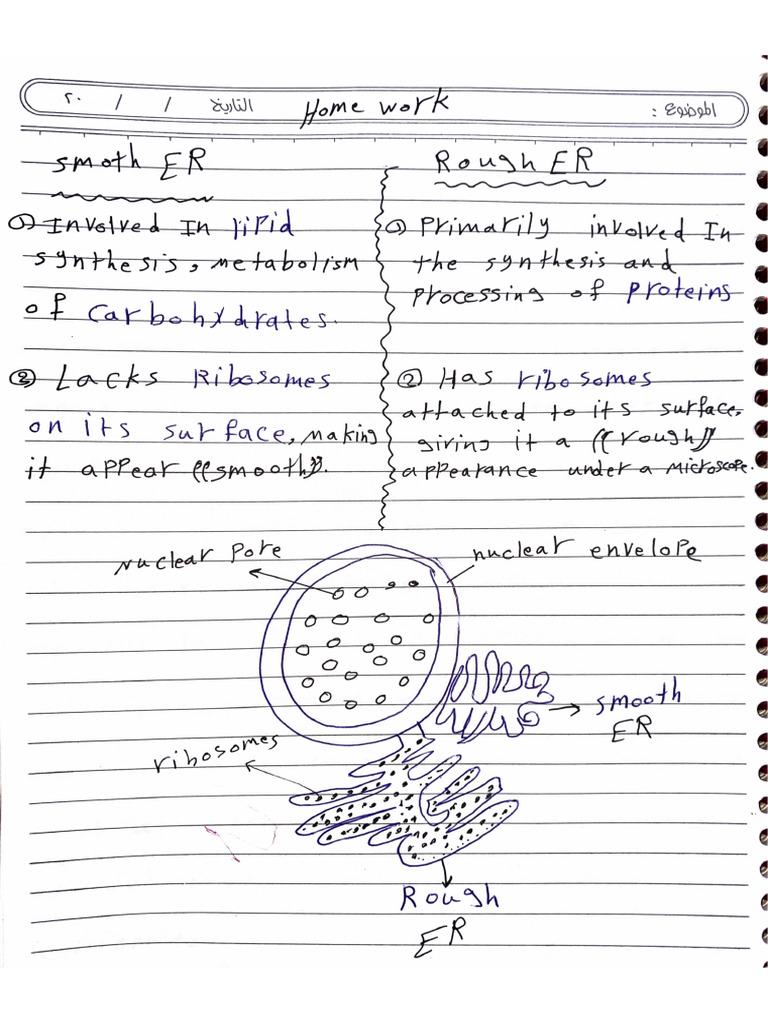 الموضوع :
Home work
التاريخ / / ٢٠
smoth ER
① Involved In lipid
synthesis, metabolism
of carbohydrates.
② Lacks Ribosomes
on its surface, making
it appear ((smooth)).
Rough ER
① Primarily involved In
the synthesis and
processing of proteins
② Has ribosomes
attached to its surface,
giving it a ((rough))
appearance under a microscope.
Nuclear Pore
nuclear envelope
smooth
ER
ribosomes
Rough
ER